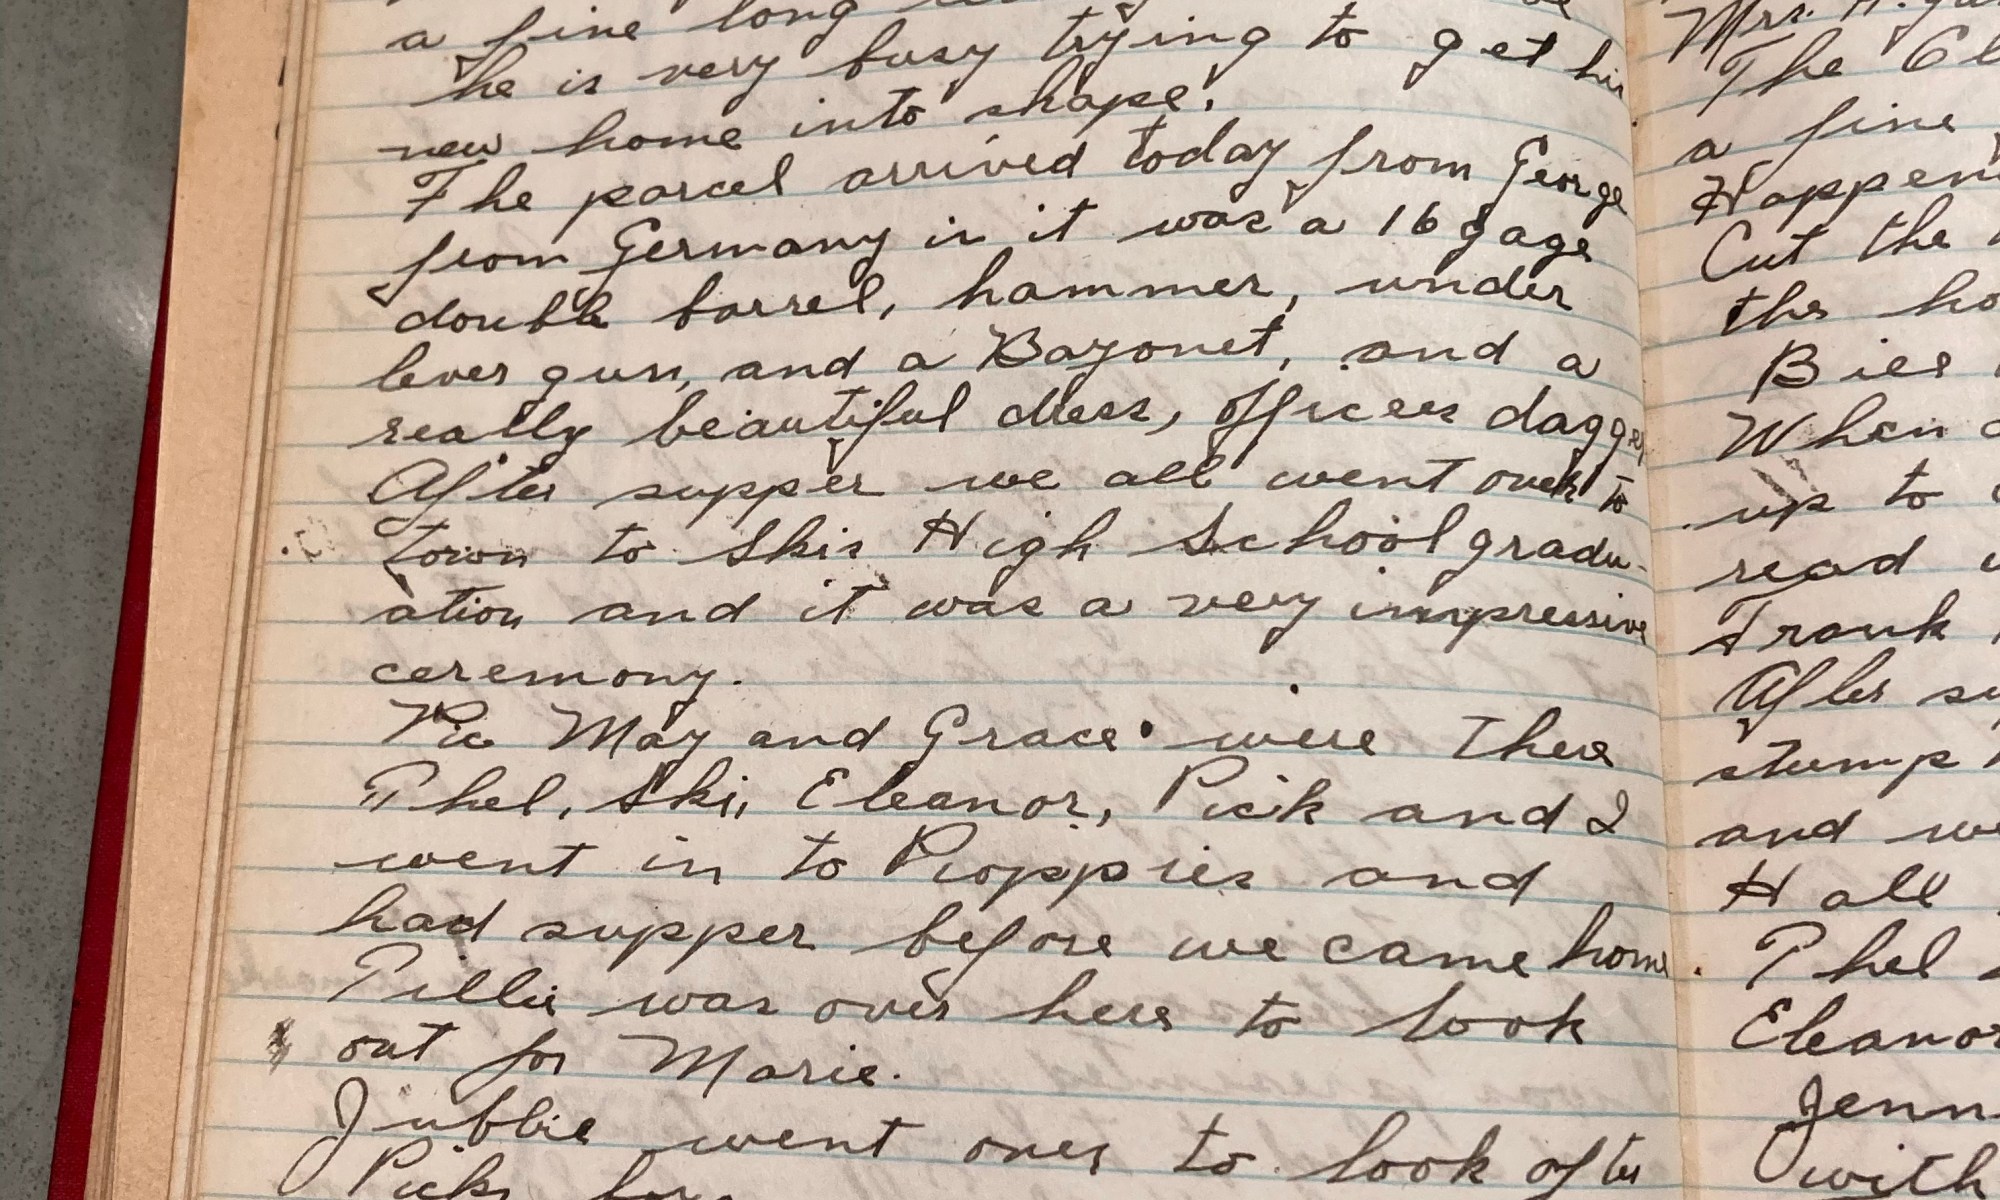 a fine long
he is very busy trying to get his
new home into shape.
The parcel arrived today from George
from Germany in it was a 16 gage
double barrel, hammer, under
lever gun, and a Bayonet, and a
really beautiful dress, officers dagger
After supper we all went over to
town to Skis High School gradu-
ation and it was a very impressive
ceremony.
Vic May and Grace were there
Phel, Ski, Eleanor, Pick and I
went in to Proppies and
had supper before we came home.
Tillie was over here to look
out for Marie.
Jubbie went over to look after
Picks
Mrs. H.
The
a fine
Happen
Cut the
the ho
Bies
When
up to
read
Frank
After su
stump
and we
Hall
Phel
Eleanor
Jenn
with